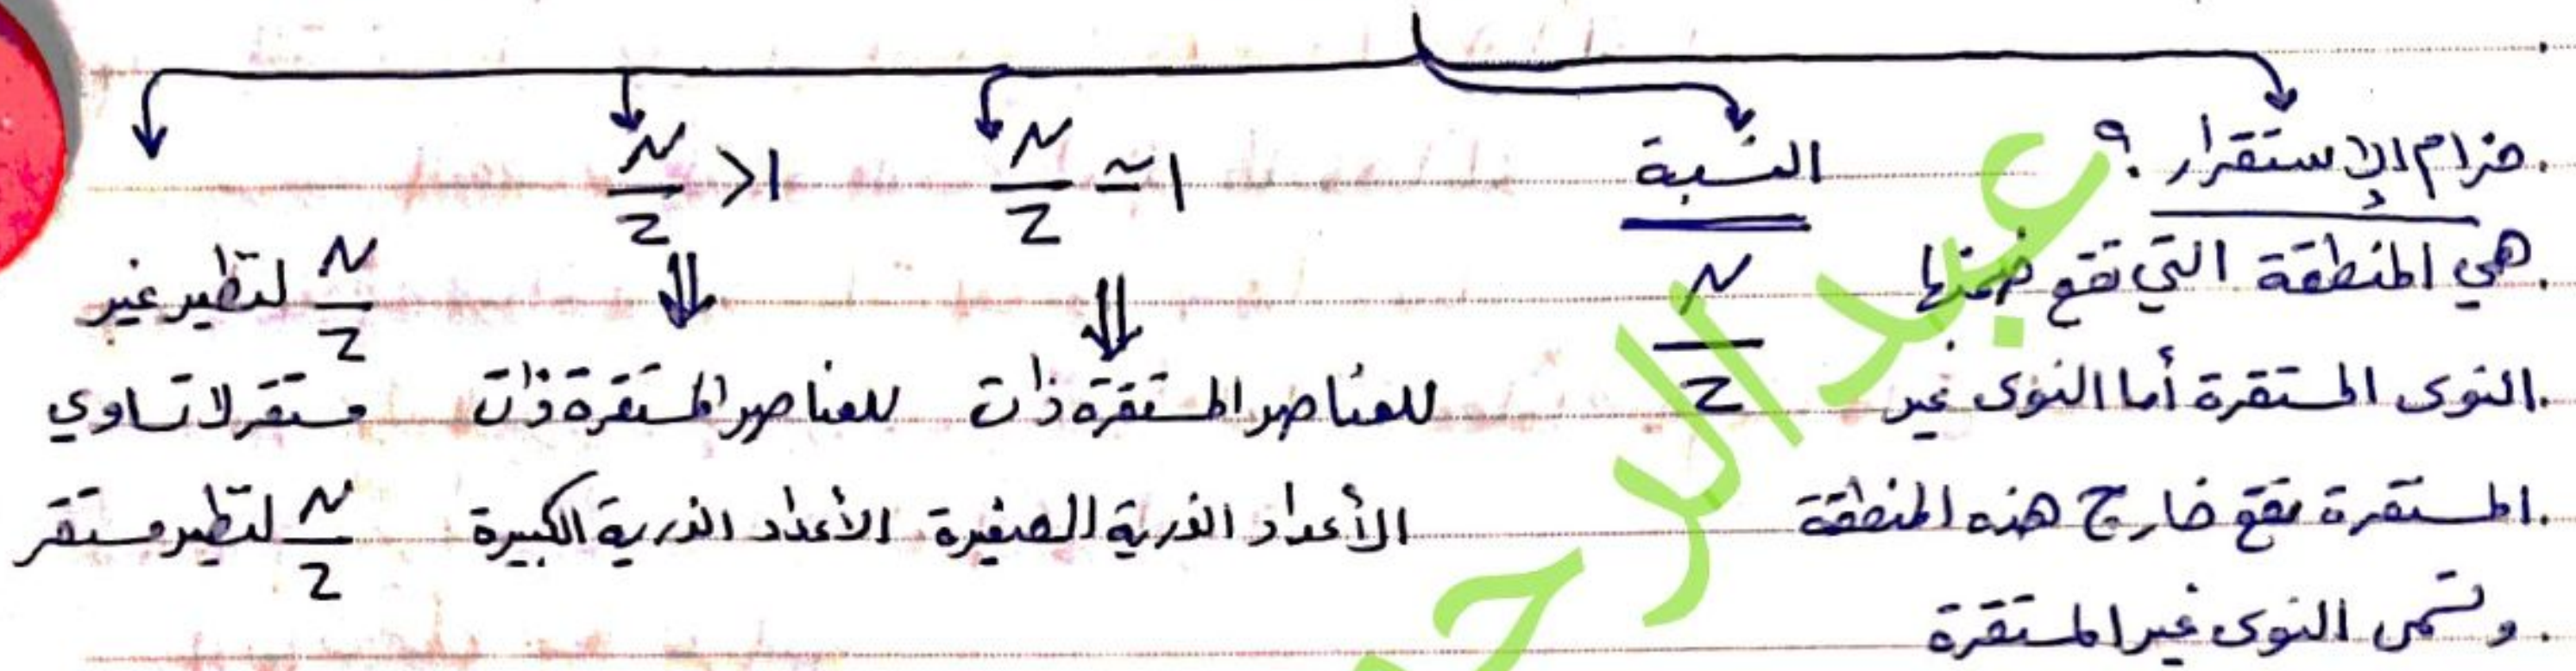 حزام الإستقرار ؟
هي المنطقة التي تقع ضمنها
النوى المستقرة أما النوى غير
المستقرة تقع خارج هذه المنطقة
وتسمى النوى غير المستقرة
النسبة
N/Z
N/Z ≃ 1
للعناصر المستقرة ذات
الأعداد الذرية الصغيرة
N/Z > 1
للعناصر المستقرة ذات
الأعداد الذرية الكبيرة
N/Z لنظير غير
مستقر لا تساوي
N/Z لنظير مستقر
عبد الرح